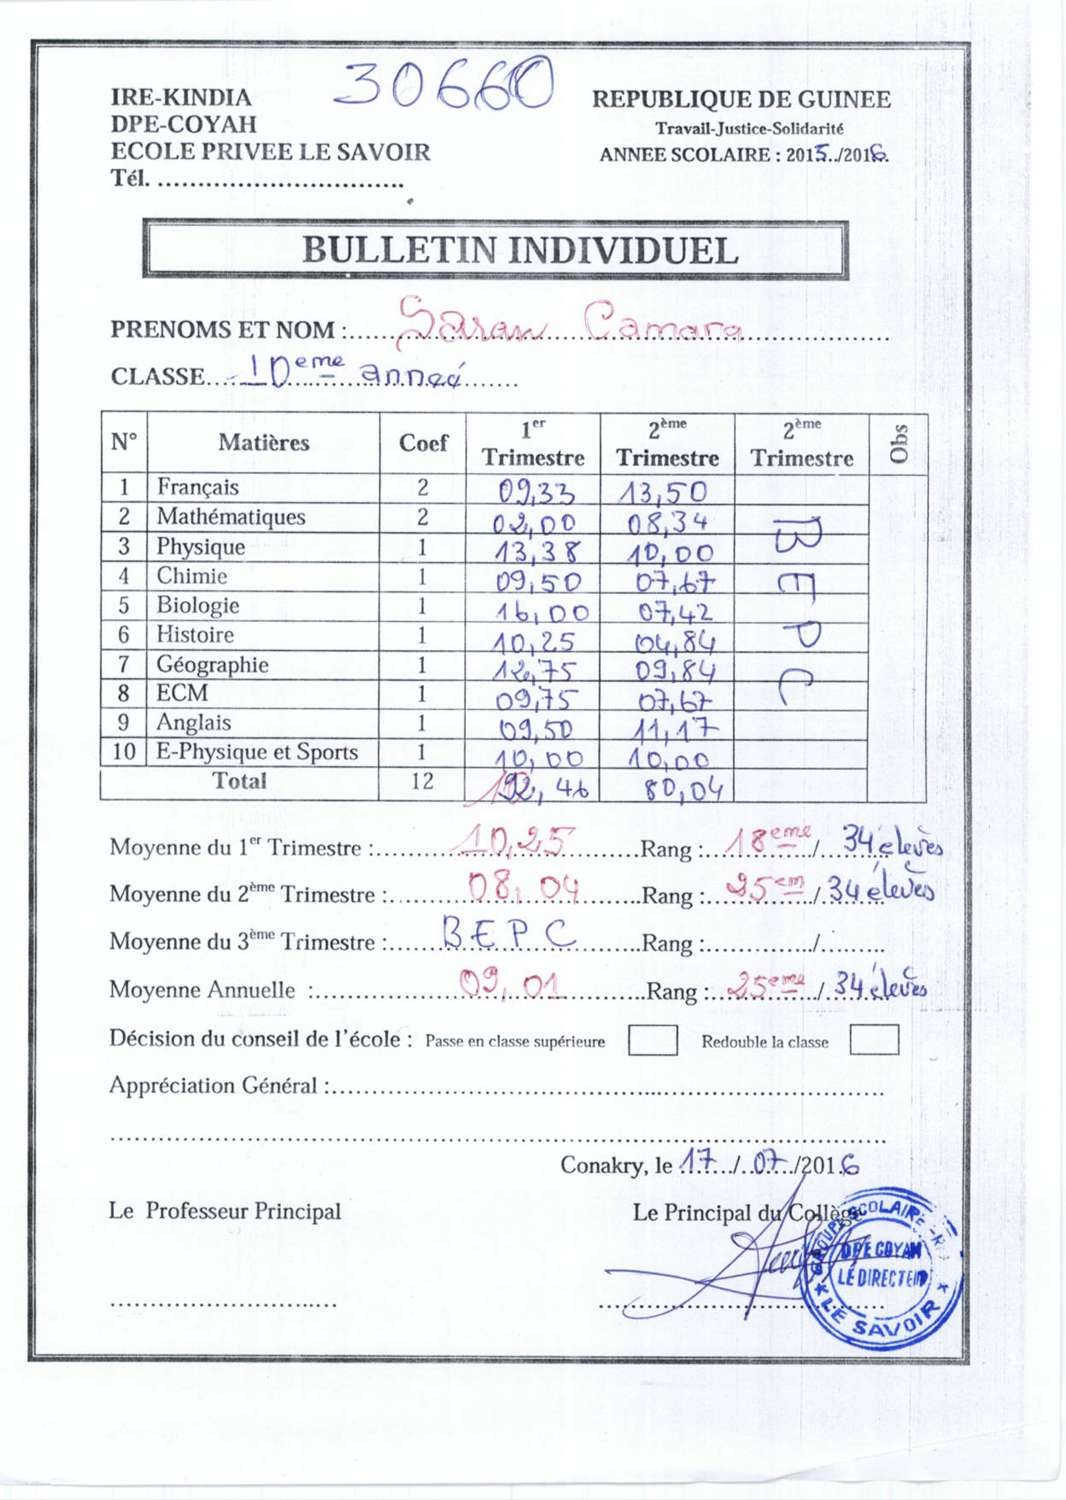 30660
IRE-KINDIA
DPE-COYAH
ECOLE PRIVEE LE SAVOIR
Tél. ..............................
REPUBLIQUE DE GUINEE
Travail-Justice-Solidarité
ANNEE SCOLAIRE : 2015../2016.
BULLETIN INDIVIDUEL
PRENOMS ET NOM :...... Saran Camara
CLASSE.... 10eme année
N° Matières Coef 1er Trimestre 2ème Trimestre 2ème Trimestre Obs
1 Français 2 09,33 13,50
2 Mathématiques 2 02,00 08,34
3 Physique 1 13,38 10,00
4 Chimie 1 09,50 07,67
5 Biologie 1 16,00 07,42
6 Histoire 1 10,25 04,84
7 Géographie 1 12,75 09,84
8 ECM 1 09,75 07,67
9 Anglais 1 09,50 11,17
10 E-Physique et Sports 1 10,00 10,00
B E P C
Total 12 102,46 80,04
Moyenne du 1er Trimestre :.... 10,25 ....Rang :.. 18eme / 34 élevès
Moyenne du 2ème Trimestre :.... 08,04 ....Rang :.. 25em / 34 élevès
Moyenne du 3ème Trimestre :.... BEPC ....Rang :............../..........
Moyenne Annuelle :.... 09,01 ....Rang :.. 25eme / 34 élevès
Décision du conseil de l'école : Passe en classe supérieure Redouble la classe
Appréciation Général :..............................
Conakry, le 17/07/2016
Le Professeur Principal
Le Principal du Collège
GROUPE SCOLAIRE
DPE COYAH
LE DIRECTEUR
* LE SAVOIR *